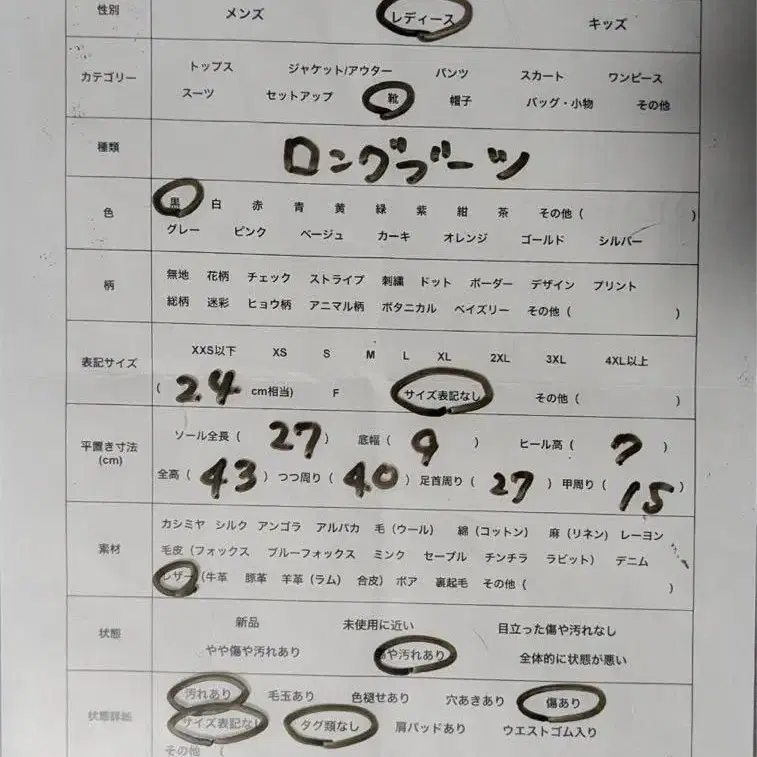 性別 メンズ レディース キッズ
カテゴリー
トップス ジャケット/アウター パンツ スカート ワンピース
スーツ セットアップ 靴 帽子 バッグ・小物 その他
種類 ロングブーツ
色
黒 白 赤 青 黄 緑 紫 紺 茶 その他 ( )
グレー ピンク ベージュ カーキ オレンジ ゴールド シルバー
柄
無地 花柄 チェック ストライプ 刺繍 ドット ボーダー デザイン プリント
総柄 迷彩 ヒョウ柄 アニマル柄 ボタニカル ペイズリー その他 ( )
表記サイズ
XXS以下 XS S M L XL 2XL 3XL 4XL以上
( 24 cm相当) F サイズ表記なし その他 ( )
平置き寸法
(cm)
ソール全長 ( 27 ) 底幅 ( 9 ) ヒール高 ( 7 )
全高 ( 43 ) つつ周り ( 40 ) 足首周り ( 27 ) 甲周り ( 15 )
素材
カシミヤ シルク アンゴラ アルパカ 毛 (ウール) 綿 (コットン) 麻 (リネン) レーヨン
毛皮 (フォックス ブルーフォックス ミンク セーブル チンチラ ラビット) デニム
レザー (牛革 豚革 羊革 (ラム) 合皮) ボア 裏起毛 その他 ( )
状態
新品 未使用に近い 目立った傷や汚れなし
やや傷や汚れあり 傷や汚れあり 全体的に状態が悪い
状態詳細
汚れあり 毛玉あり 色褪せあり 穴あきあり 傷あり
サイズ表記なし タグ類なし 肩パッドあり ウエストゴム入り
その他 (